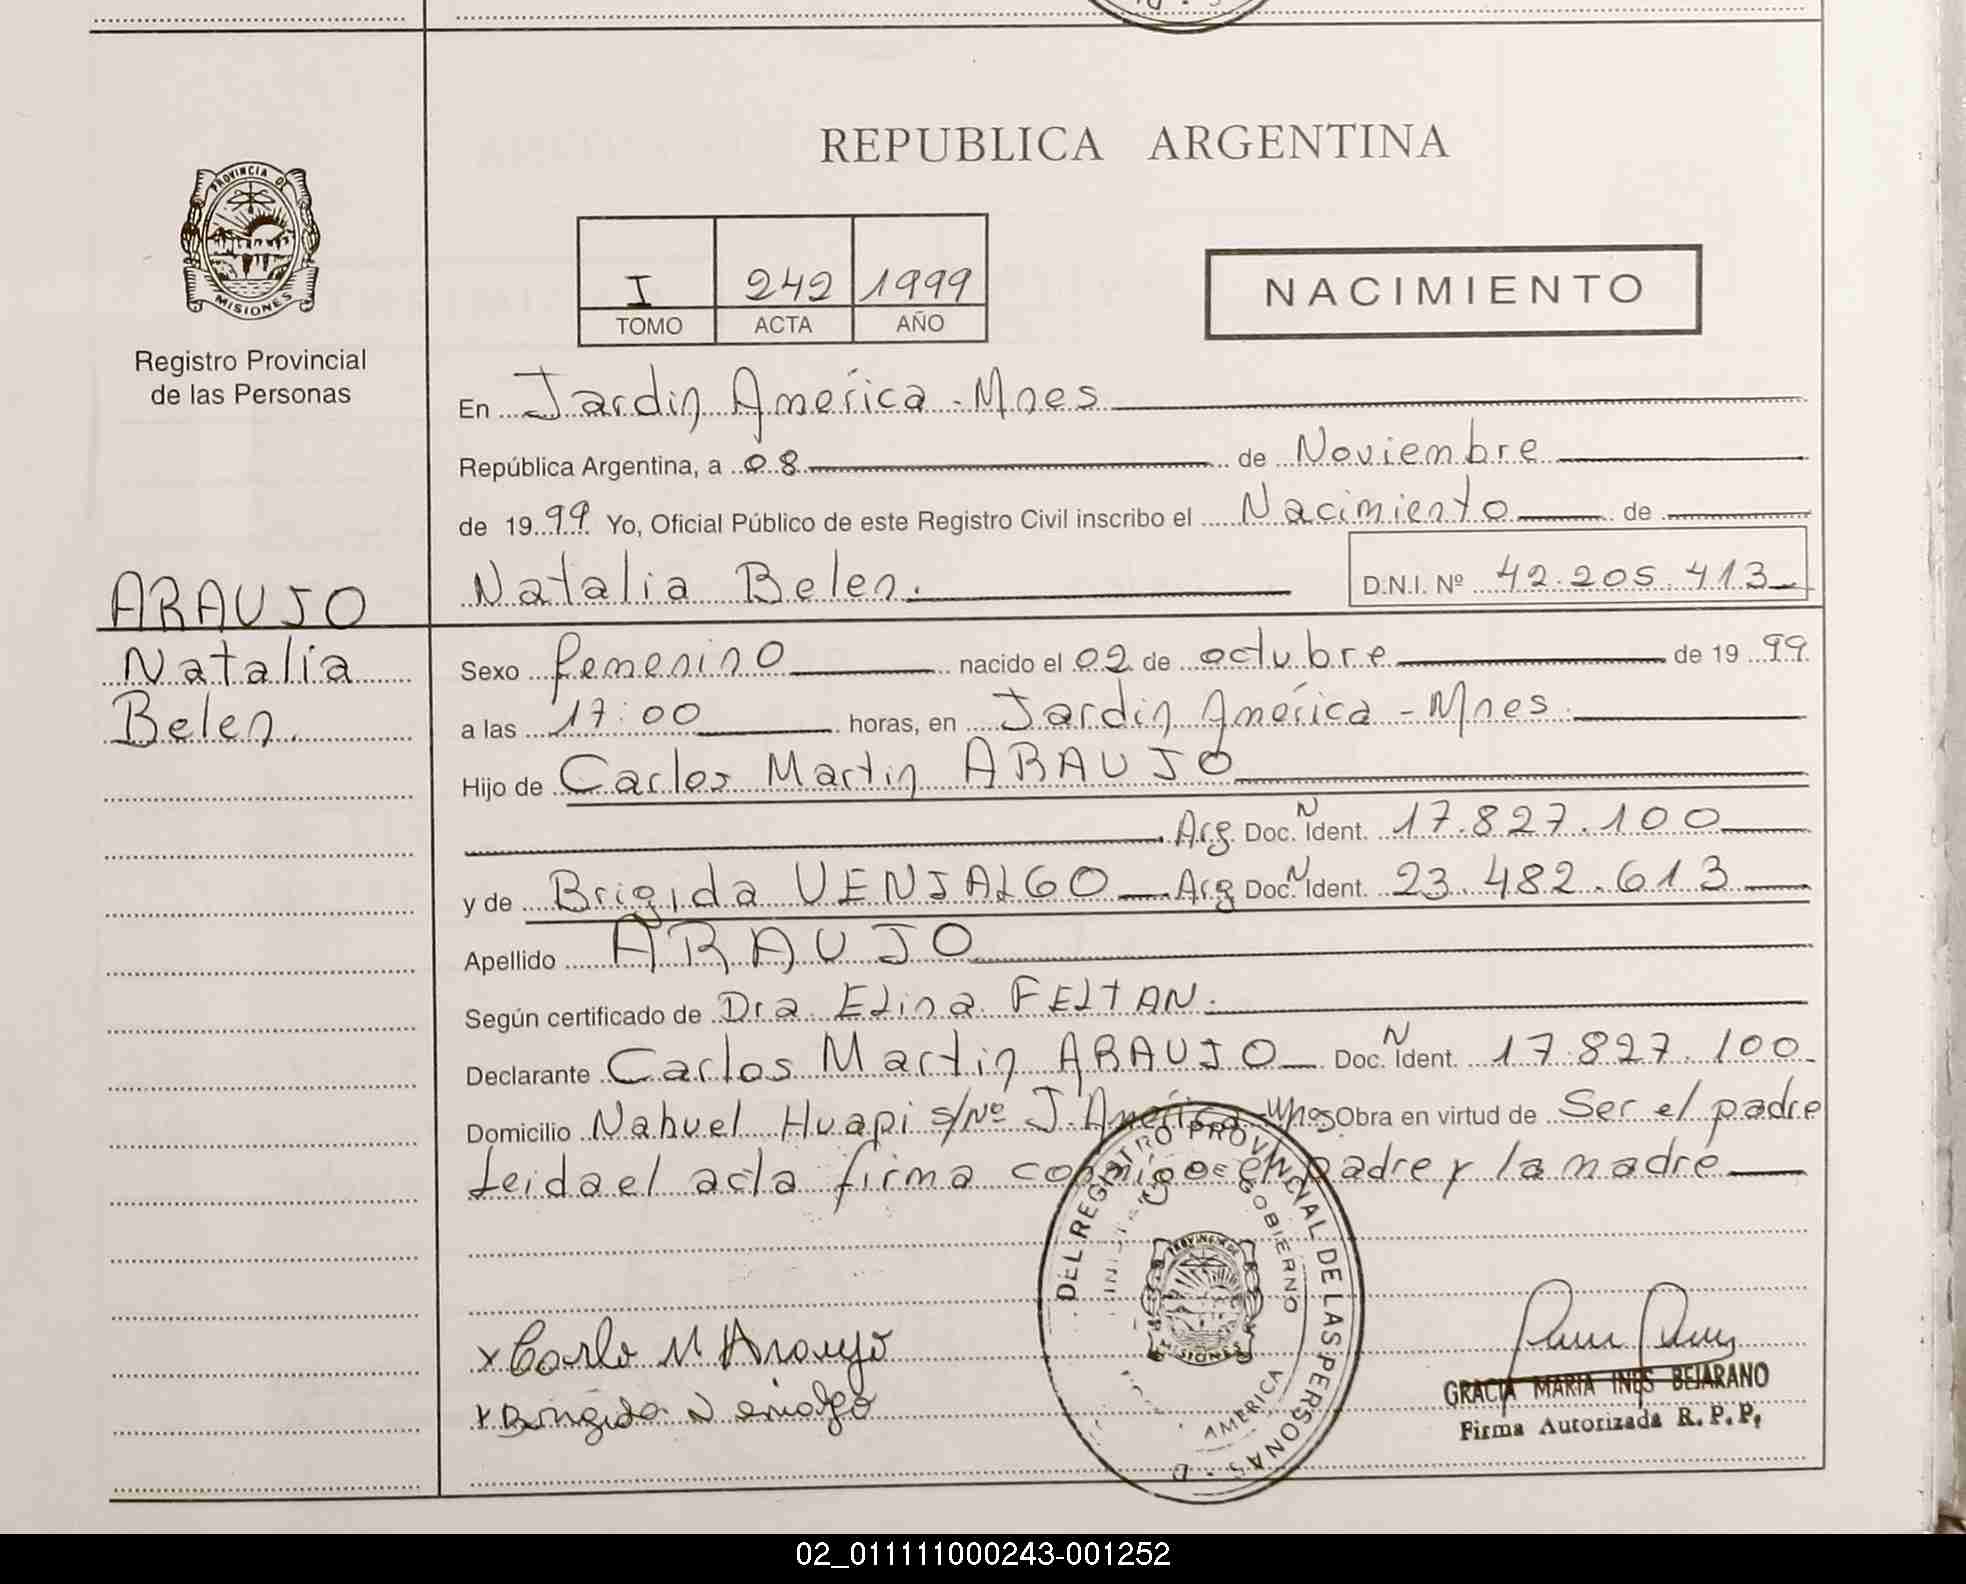 REPUBLICA ARGENTINA
PROVINCIA DE
MISIONES
Registro Provincial
de las Personas
I 242 1999
TOMO ACTA AÑO
NACIMIENTO
En Jardin America - Mnes
República Argentina, a 08 de Noviembre
de 1999 Yo, Oficial Público de este Registro Civil inscribo el Nacimiento de
Natalia Belen. D.N.I. Nº 42.205.413
ARAUJO
Natalia
Belen.
Sexo femenino nacido el 02 de octubre de 1999
a las 17:00 horas, en Jardin América - Mnes.
Hijo de Carlos Martin ARAUJO
Arg. Doc. N Ident. 17.827.100
y de Brigida VENIALGO Arg Doc. N Ident. 23.482.613
Apellido ARAUJO
Según certificado de Dra Elina FELTAN.
Declarante Carlos Martin ARAUJO Doc. N Ident. 17.827.100
Domicilio Nahuel Huapi s/Nº J. América - Mnes Obra en virtud de Ser el padre
Leida el acta firma conmigo el padre y la madre
DEL REGISTRO PROVINCIAL DE LAS PERSONAS
GOBIERNO
PROVINCIA DE
MISIONES
AMERICA
x Carlo M Araujo
x Brigida Venialgo
GRACIA MARIA INES BEJARANO
Firma Autorizada R.P.P.
02_011111000243-001252